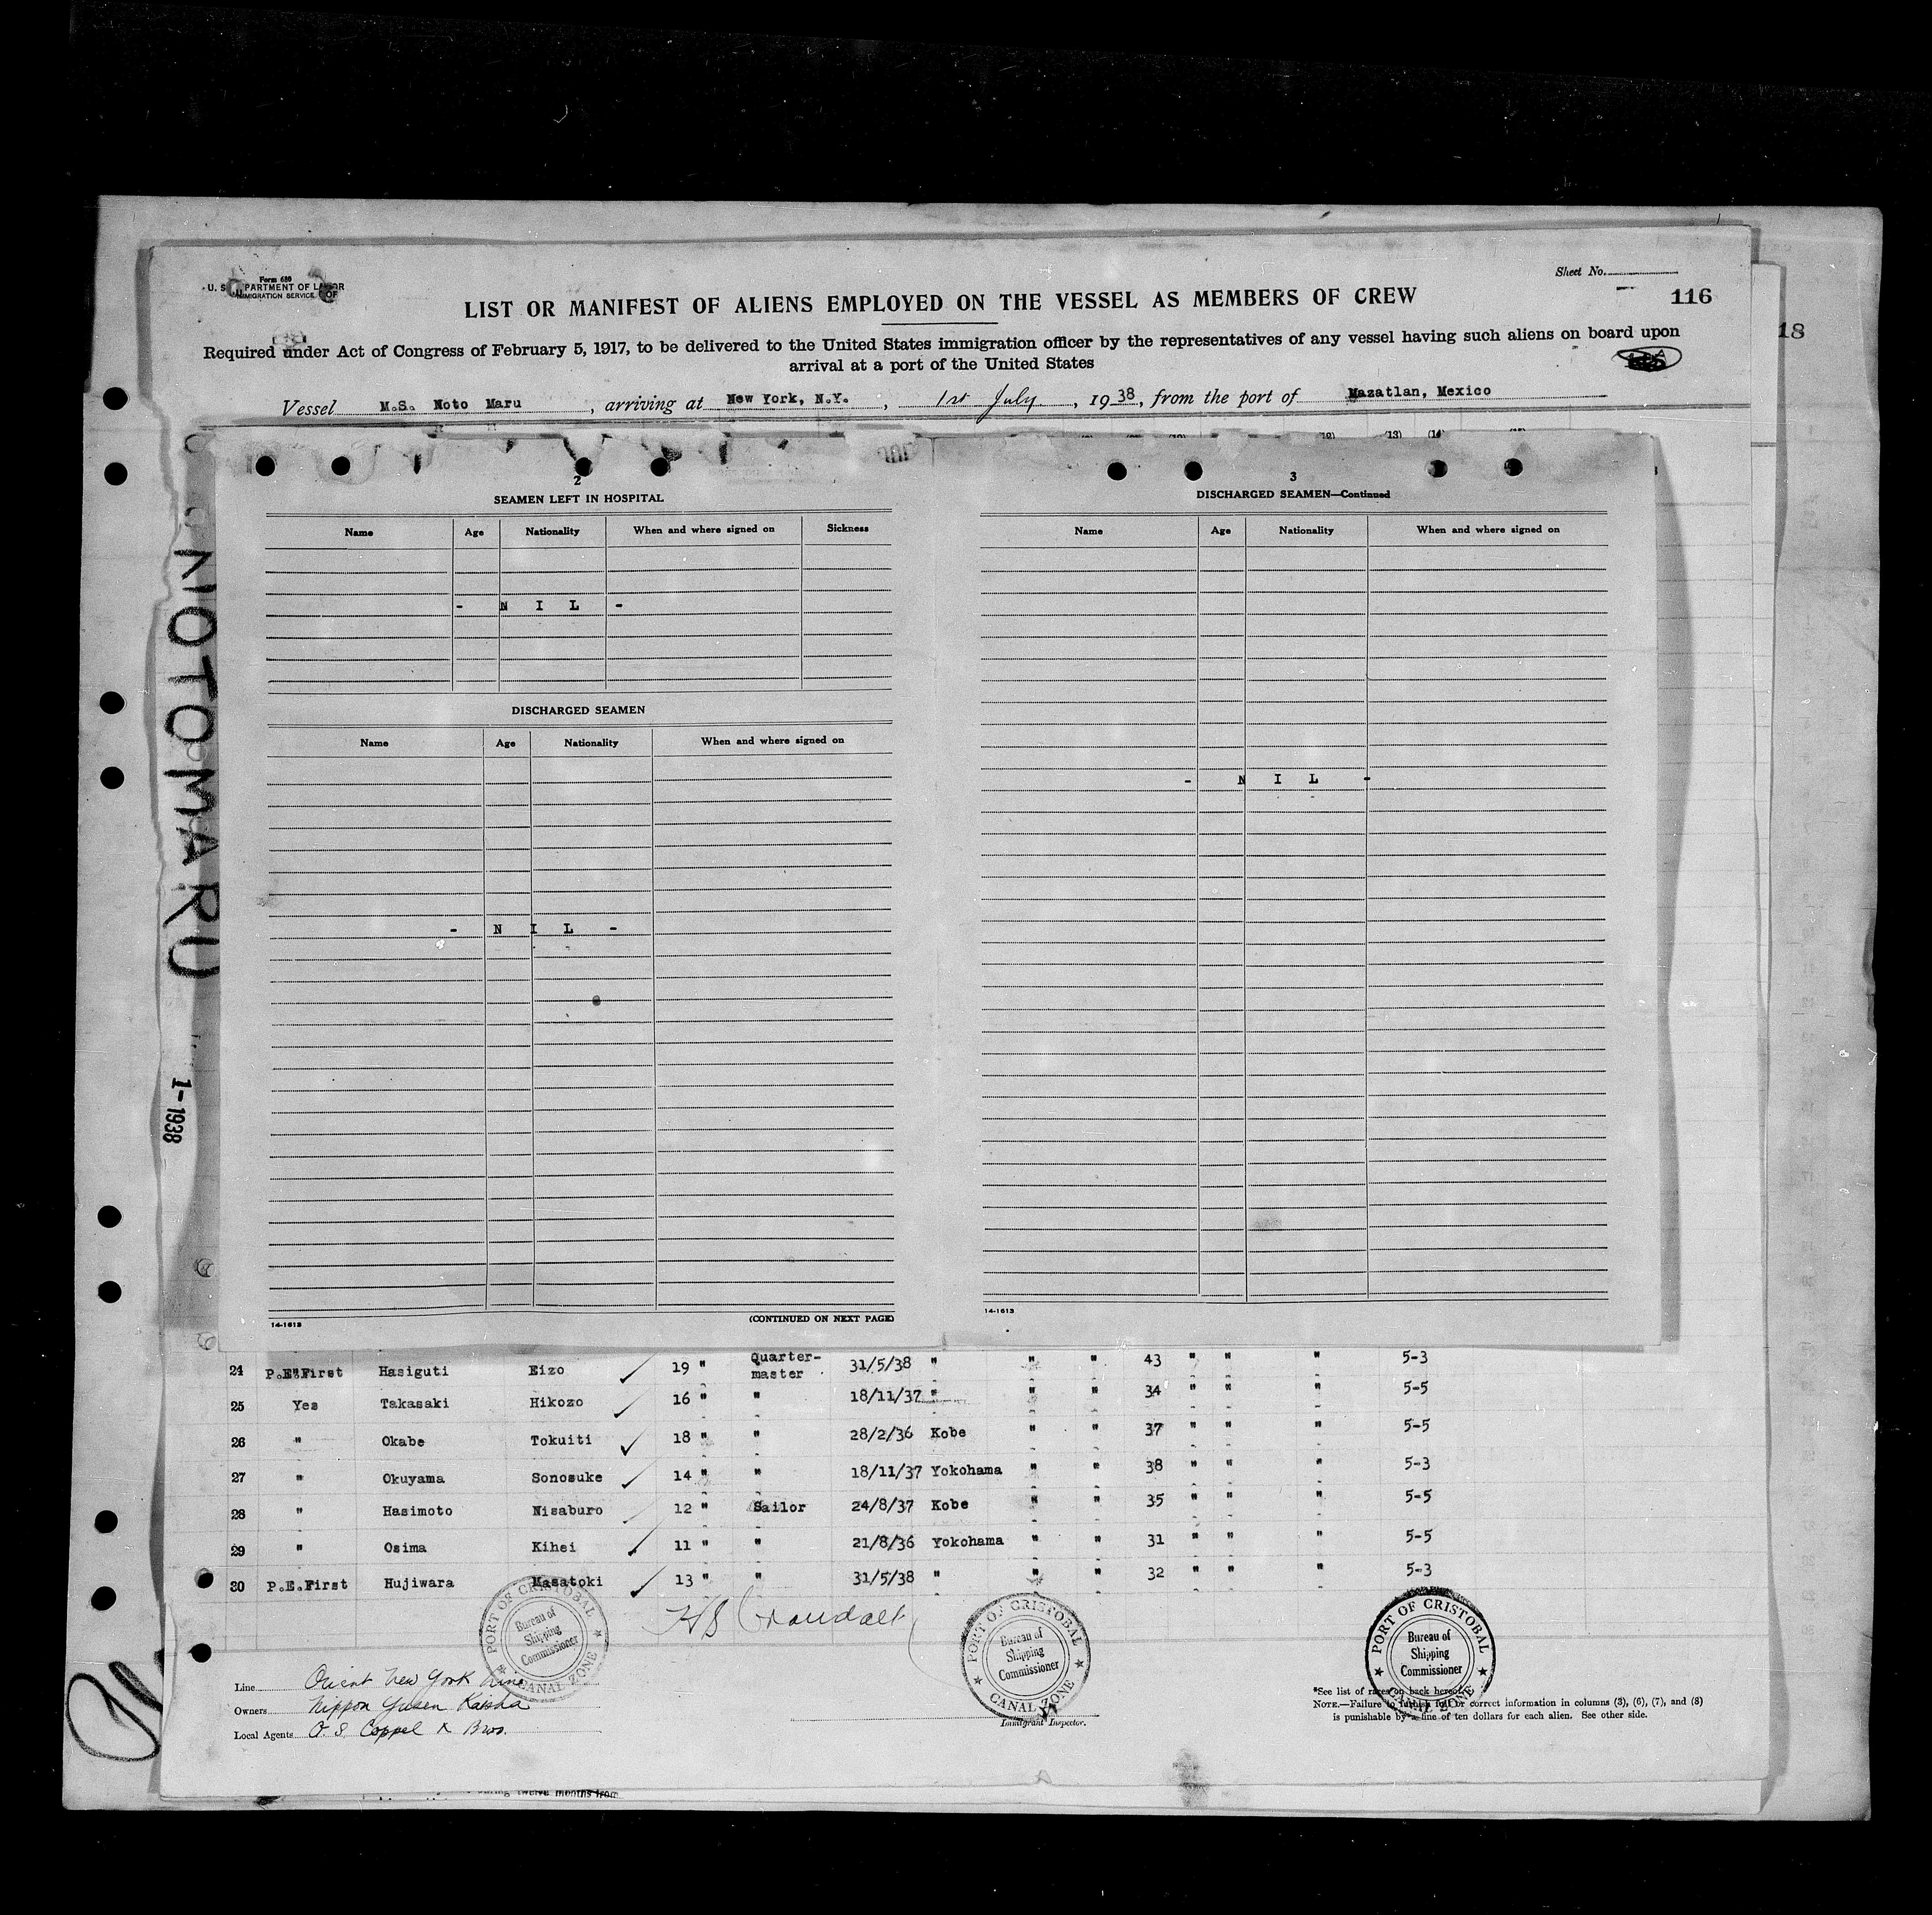 Form 680
U. S. DEPARTMENT OF LABOR
IMMIGRATION SERVICE
Sheet No.
LIST OR MANIFEST OF ALIENS EMPLOYED ON THE VESSEL AS MEMBERS OF CREW
116
18
Required under Act of Congress of February 5, 1917, to be delivered to the United States immigration officer by the representatives of any vessel having such aliens on board upon
arrival at a port of the United States
Vessel M.S. Noto Maru, arriving at New York, N.Y., 1st July, 1938, from the port of Mazatlan, Mexico
(13) (14)
NOTO MARU
1-1938
2
SEAMEN LEFT IN HOSPITAL
Name Age Nationality When and where signed on Sickness
- N I L -
DISCHARGED SEAMEN
Name Age Nationality When and where signed on
- N I L -
14-1613
(CONTINUED ON NEXT PAGE)
3
DISCHARGED SEAMEN—Continued
Name Age Nationality When and where signed on
- N I L -
14-1613
24 P.E.First Hasiguti Eizo 19 " Quarter-master 31/5/38 " " " 43 " " " 5-3
25 Yes Takasaki Hikozo 16 " " 18/11/37 " " " 34 " " " 5-5
26 " Okabe Tokuiti 18 " " 28/2/36 Kobe " " 37 " " " 5-5
27 " Okuyama Sonosuke 14 " " 18/11/37 Yokohama " " 38 " " " 5-3
28 " Hasimoto Nisaburo 12 " Sailor 24/8/37 Kobe " " 35 " " " 5-5
29 " Osima Kihei 11 " " 21/8/36 Yokohama " " 31 " " " 5-5
30 P.E.First Hujiwara Masatoki 13 " " 31/5/38 " " " 32 " " " 5-3
PORT OF CRISTOBAL
Bureau of
Shipping
Commissioner
CANAL ZONE
HB Crandall
PORT OF CRISTOBAL
Bureau of
Shipping
Commissioner
CANAL ZONE
PORT OF CRISTOBAL
Bureau of
Shipping
Commissioner
CANAL ZONE
Line Orient New York Line
Owners Nippon Yusen Kaisha
Local Agents O. S. Coppel & Bros.
Immigrant Inspector.
*See list of races on back hereof.
NOTE.—Failure to furnish full or correct information in columns (3), (6), (7), and (8)
is punishable by a fine of ten dollars for each alien. See other side.
twelve months from